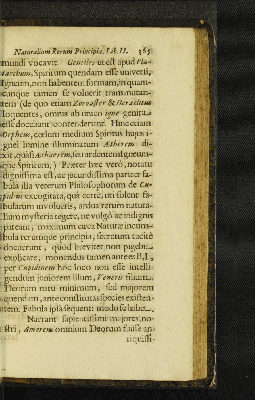 Naturalium Rerum Principia, Lib. II. 365
mundi vocavit Gentiles ut est apud Plu-
tarchum, Spiritum quendam esse universi,
Igneum, non habentem formam, in quam-
cunque tamen se voluerit transmutan-
tem (de quo etiam Zoroaster & Heraclitus
loquentes, omnia ab unico igne genita
esse docebant
Orpheus, cœlum medium Spiritus hujus i-
gnei lumine illuminatum Ætherem di-
xit, quasi Aethaerem, seu ardentem igneum-
que Spiritum, ) Præter hæc verò, notatu
dignissima est, ac jucundissima pariter fa-
bula illa veterum Philosophorum de Cu-
pidine excogitata, quâ certè, uti solent fa-
bularum involucris, ardua rerum natura-
lium mysteria tegere, ne vulgò ac indignis
pateant, maximum circa Naturæ incuna-
bula rerumque principia, secretum tacitè
docuerunt, quod breviter non pigebit
explicare, monendus tamen antea B. L.
per Cupidinem hoc loco non esse intelli-
gendum juniorem illum, Veneris filium
Deorum natu minimum, sed majorem
quendam, ante constitutas species existen-
tem. Fabula ipsa sequenti modo se habet.
Narrant sapientissimi majores no-
stri, Amorem omnium Deorum fuisse an-
tiquissi-